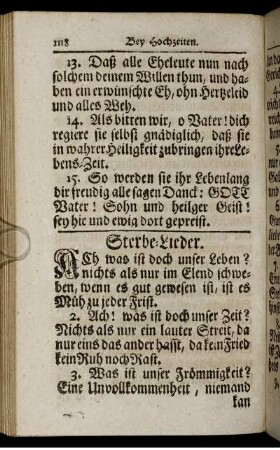 1118 Bey Hochzeiten.
13. Daß alle Eheleute nun nach
solchem deinem Willen thun, und ha-
ben ein erwünschte Eh, ohn Hertzeleid
und alles Weh.
14. Als bitten wir, o Vater! dich
regiere sie selbst gnädiglich, daß sie
in wahrer Heiligkeit zubringen ihre Le-
bens-Zeit.
15. So werden sie ihr Lebenlang
dir freudig alle sagen Danck: GOTT
Vater! Sohn und heilger Geist!
sey hie und ewig dort gepreist.
Sterbe-Lieder.
ACh was ist doch unser Leben?
nichts als nur im Elend schwe-
ben, wenn es gut gewesen ist, ist es
Müh zu jeder Frist.
2. Ach! was ist doch unser Zeit?
Nichts als nur ein lauter Streit, da
nur eins das ander hasst, da kein Fried
kein Ruh noch Rast.
3. Was ist unser Frömmigkeit?
Eine Unvollkommenheit, niemand
kan